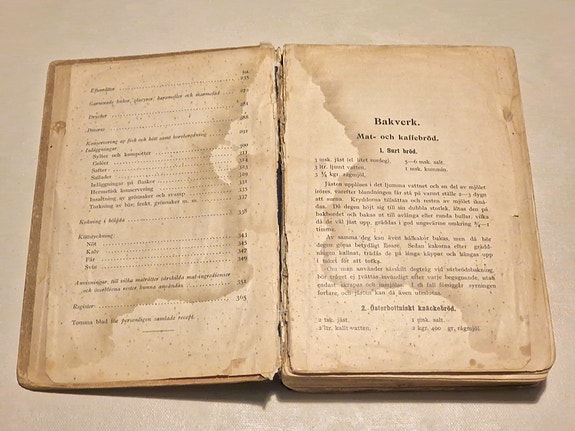 Sid.
Efterrätter 235
Garnerade kakor, glasyrer, karameller och marmelad 272
Drycker 284
Diverse 286
Konservering av fisk och kött samt korvberedning 291
Inläggningar
Sylter och kompotter
Geléer
Safter
Sallader
Inläggningar på flaskor
Hermetisk konservering
Insaltning av grönsaker och svamp
Torkning av bär, frukt, grönsaker m. m. 337
Kokning i hölåda 338
Köttstyckning:
Nöt 343
Kalv 345
Får 347
Svin 349
Anvisningar, till vilka maträtter särskilda mat-ingredienser
och överblivna rester kunna användas 351
Register 365
Tomma blad för personligen samlade recept.
Bakverk.
Mat- och kaffebröd.
1. Surt bröd.
3 msk. jäst (el. litet surdeg),
3 ltr. ljumt vatten,
3 ½ kgr. rågmjöl,
5—6 msk. salt,
1 msk. kummin.
Jästen upplöses i det ljumma vattnet och en del av mjölet
inröres, varefter blandningen får stå på varmt ställe 2—3 dygn
att surna. Kryddorna tillsättas och resten av mjölet iknå-
das. Då degen höjt sig till sin dubbla storlek, lätas den på
bakbordet och bakas ut till avlånga eller runda bullar, vilka
då de väl jäst upp, gräddas i god ungsvärme omkring ¾—1
timme.
Av samma deg kan även hålkakor bakas, men då bör
degen göras betydligt fastare. Sedan kakorna efter grädd-
ningen kallnat, trädas de på långa käppar och hängas upp
i taket för att torka.
Om man använder särskilt degtråg vid surbrödsbakning,
bör tråget ej tvättas invändigt efter varje begagnande, utan
endast skrapas och inmjölas. I så fall försiggår syrningen
fortare, och jästen kan då även uteslutas.
2. Österbottniskt knäckebröd.
2 tsk. jäst,
2 ltr. kallt vatten,
1 msk. salt,
2 kgr. 400 gr. rågmjöl.